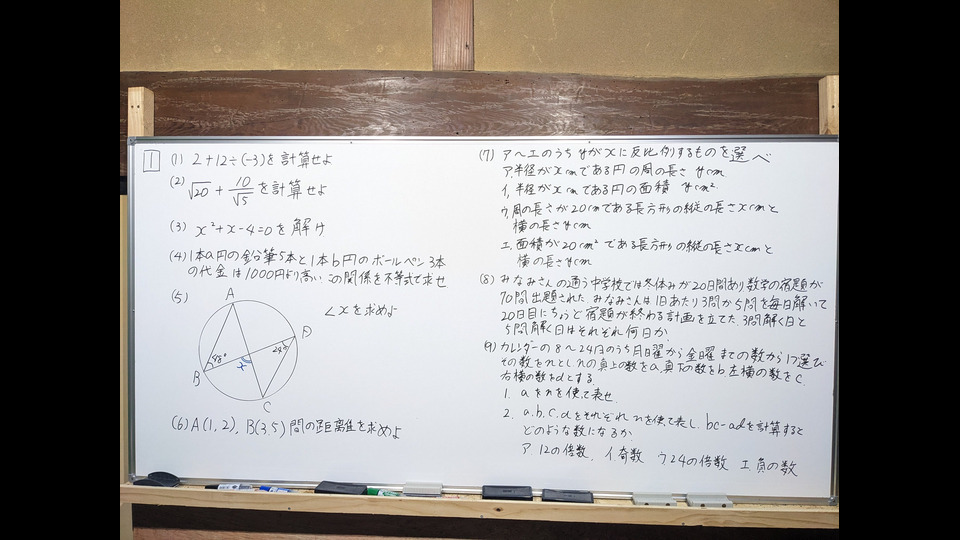 1 (1) 2+12÷(-3)を計算せよ
(2) √20 + 10/√5 を計算せよ
(3) x²+x-4=0を解け
(4) 1本a円の鉛筆5本と1本b円のボールペン3本
の代金は1000円より高い この関係を不等式で求せ
(5) ∠xを求めよ
A
D
48°
28°
x
B
C
(6) A(1,2), B(3,5)間の距離を求めよ
(7) ア〜エのうちyがxに反比例するものを選べ
ア 半径がxcmである円の周の長さ ycm
イ. 半径がxcmである円の面積 ycm²
ウ. 周の長さが20cmである長方形の縦の長さxcmと
横の長さycm
エ. 面積が20cm²である長方形の縦の長さxcmと
横の長さycm
(8) みなみさんの通う中学校では冬休みが20日間あり数学の宿題が
70問出題された. みなみさんは1日あたり3問か5問を毎日解いて
20日目にちょうど宿題が終わる計画を立てた. 3問解く日と
5問解く日はそれぞれ何日か.
(9) カレンダーの8〜24日のうち月曜から金曜までの数から1つ選び
その数をnとしnの真上の数をa.真下の数をb.左横の数をc.
右横の数をdとする.
1. aをnを使て表せ.
2. a.b.c.dをそれぞれnを使て表し. bc-adを計算すると
どのような数になるか.
ア.12の倍数. イ奇数 ウ24の倍数 エ負の数